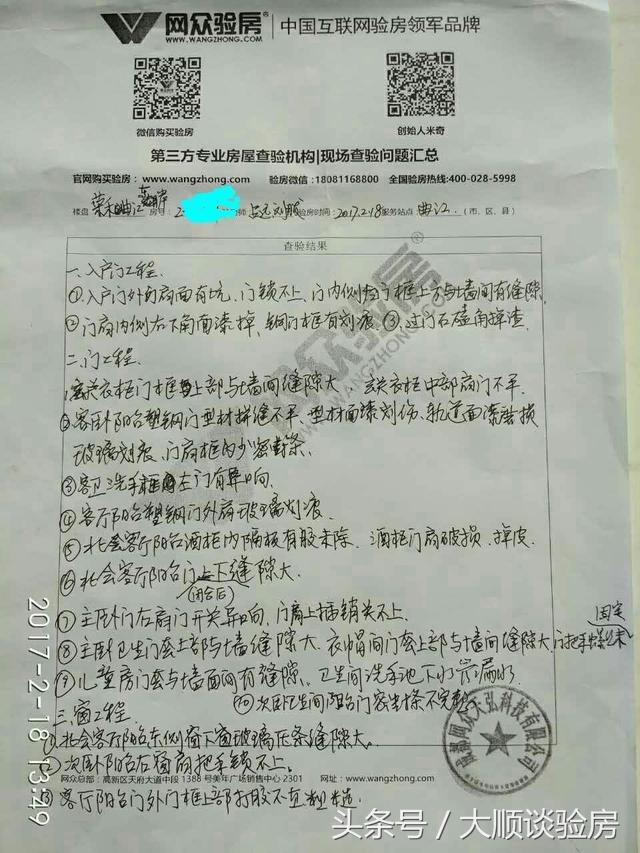 网众验房®
WWW.WANGZHONG.COM
中国互联网验房领军品牌
微信购买验房
创始人米奇
第三方专业房屋查验机构|现场查验问题汇总
官网购买验房：www.wangzhong.com 验房微信：18081168800 全国验房热线:400-028-5998
楼盘 荣和曲江 房号: 2- 验房时间: 2017.2.18 服务站点: 曲江 (市、区、县)
查验结果
一.入户门工程.
①入户门外门扇面有坑、门锁不上、门内侧 门框上方与墙间有缝隙
②门扇内侧右下角面漆掉、钢门框有划痕 ③.过门石磕角掉渣
二.门工程.
玄关衣柜门框上部与墙间缝隙大 玄关衣柜中部扇门不平.
②客卧阳台塑钢门型材拼缝不平、型材面漆划伤、轨道面漆磨损
玻璃划痕、门扇框内少密封条.
③客卫洗手柜左门有异响.
④客厅阳台塑钢门外扇玻璃划痕
⑤北会客厅阳台酒柜内隔板有胶未除、酒柜门扇破损、掉皮
⑥北会客厅阳台门上下缝隙大.
(闭合后)
⑦主卧门右扇门开关异响、门扇上插销关不上.
固定
⑧主卧卫生门套上部与墙缝隙大、衣帽间门套上部与墙间缝隙大,门把手
⑨儿童房门套与墙面间有缝隙. 卫生间洗手池下水 漏水
⑩次卧卫生间阳台门密封条不完整
三.窗工程.
①北会客厅阳台东侧窗下窗玻璃压条缝隙大.
②次卧阳台右窗扇把手锁不上.
网众总部：高新区天府大道中段1388号美年广场销售中心2301 网址：www.wangzhong.com
③客厅阳台门外门框上部打胶不
成都网众天弘科技有限公司
网众验房
WWW.WANGZHONG.COM
2017-2-18 13:49
头条号 / 大顺谈验房